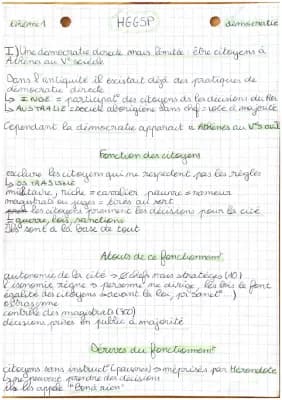 thème 1 HGGSP démocratie
I) Une démocratie directe mais limitée : être citoyens à
Athènes au Vᵉ siècle
Dans l'antiquité il existait déjà des pratiques de
démocratie directe
↳ INDE = participatᵒ des citoyens ds les décisions du
↳ AUSTRALIE = société aborigène sans chef = vote à majorité
Cependant la démocratie apparait à Athènes au Vᵉ s
Fonction des citoyens
exclure les citoyens qui ne respectent pas les règles
↳ OSTRACISME
militaire, riche = cavalier pauvre = rameur
magistrats ou juges = tirés au sort
les citoyens prennent les décisions pour la cité
= guerre, lois, sanctions
ils sont à la base de tout
Atouts de ce fonctionnement
autonomie de la cité → chefs mais stratèges (10)
l'isonomie règne → personne ne dirige, les lois le font
égalité des citoyens devant la loi
ostracisme
contrôle des magistrats (500)
décisions prises en public à majorité
Dérives du fonctionnement
citoyens sans instructᵒ (pauvres) → méprisés par Hérondote
↳ ne peuvent prendre des décisions
↳ les appelle "Bond rien"